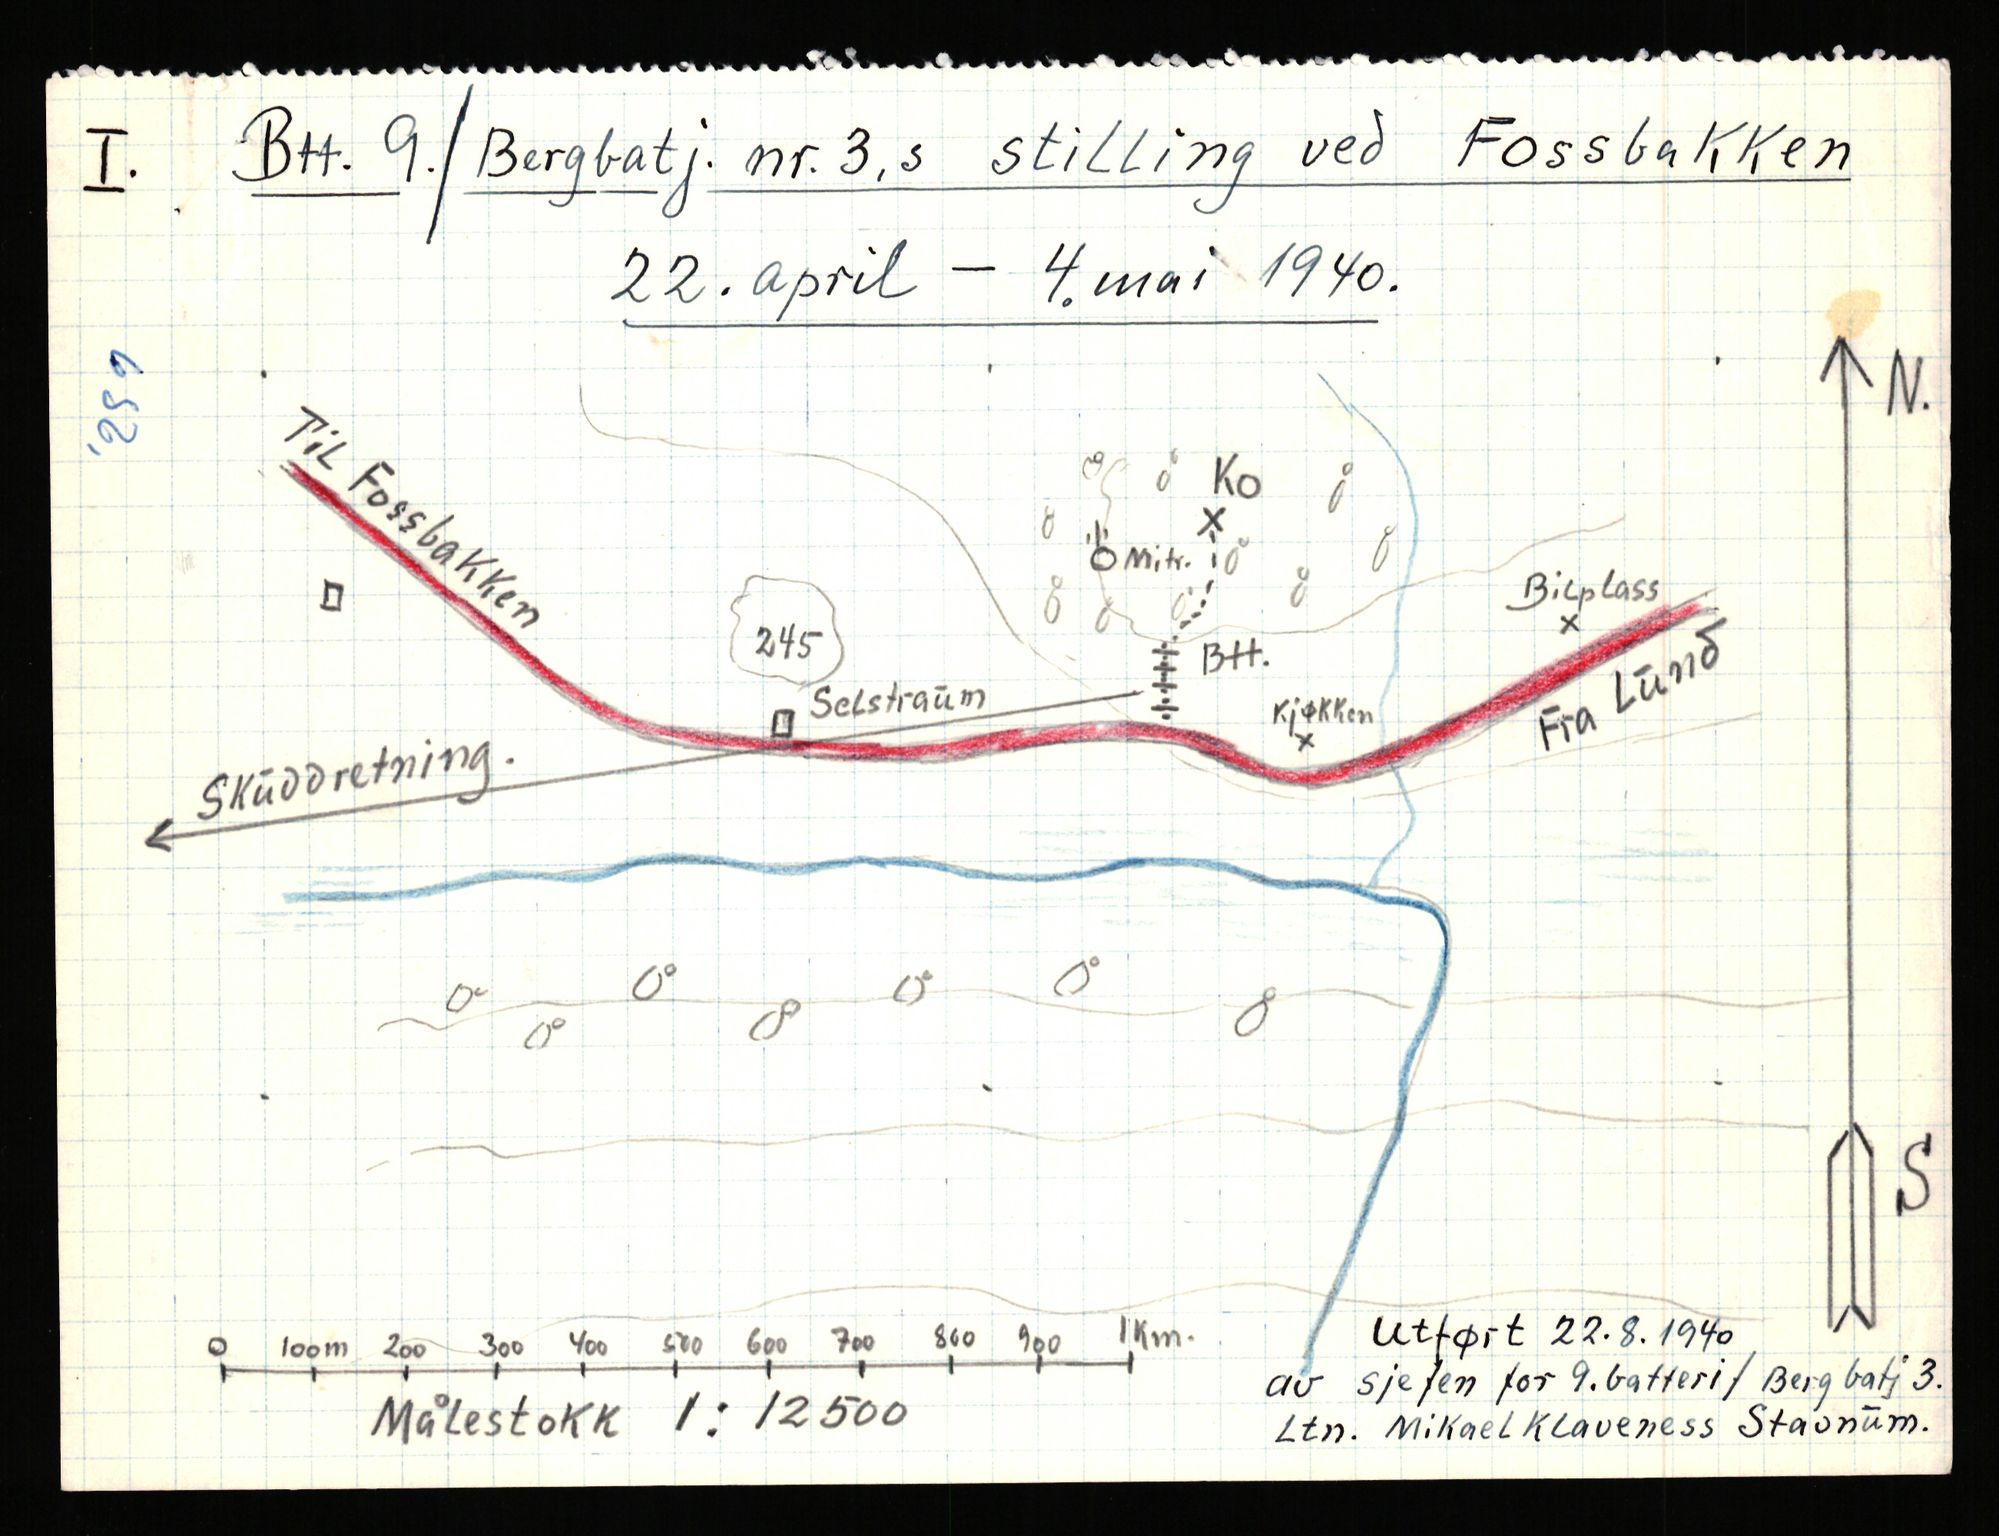 I. Btt. 9./Bergbatj. nr. 3,s stilling ved Fossbakken
22. april – 4. mai 1940.
N.
Til Fossbakken
Ko
Mitr.
Bilplass
245
Btt.
Selstraūm
Kjøkken
Fra Lūnd
Skūddretning.
S
0 100m 200 300 400 500 600 700 800 900 1Km.
Målestokk 1:12500
Utført 22.8.1940
av sjefen for 9.batteri/Bergbatj 3.
Ltn. Mikael Klaveness Stavnūm.